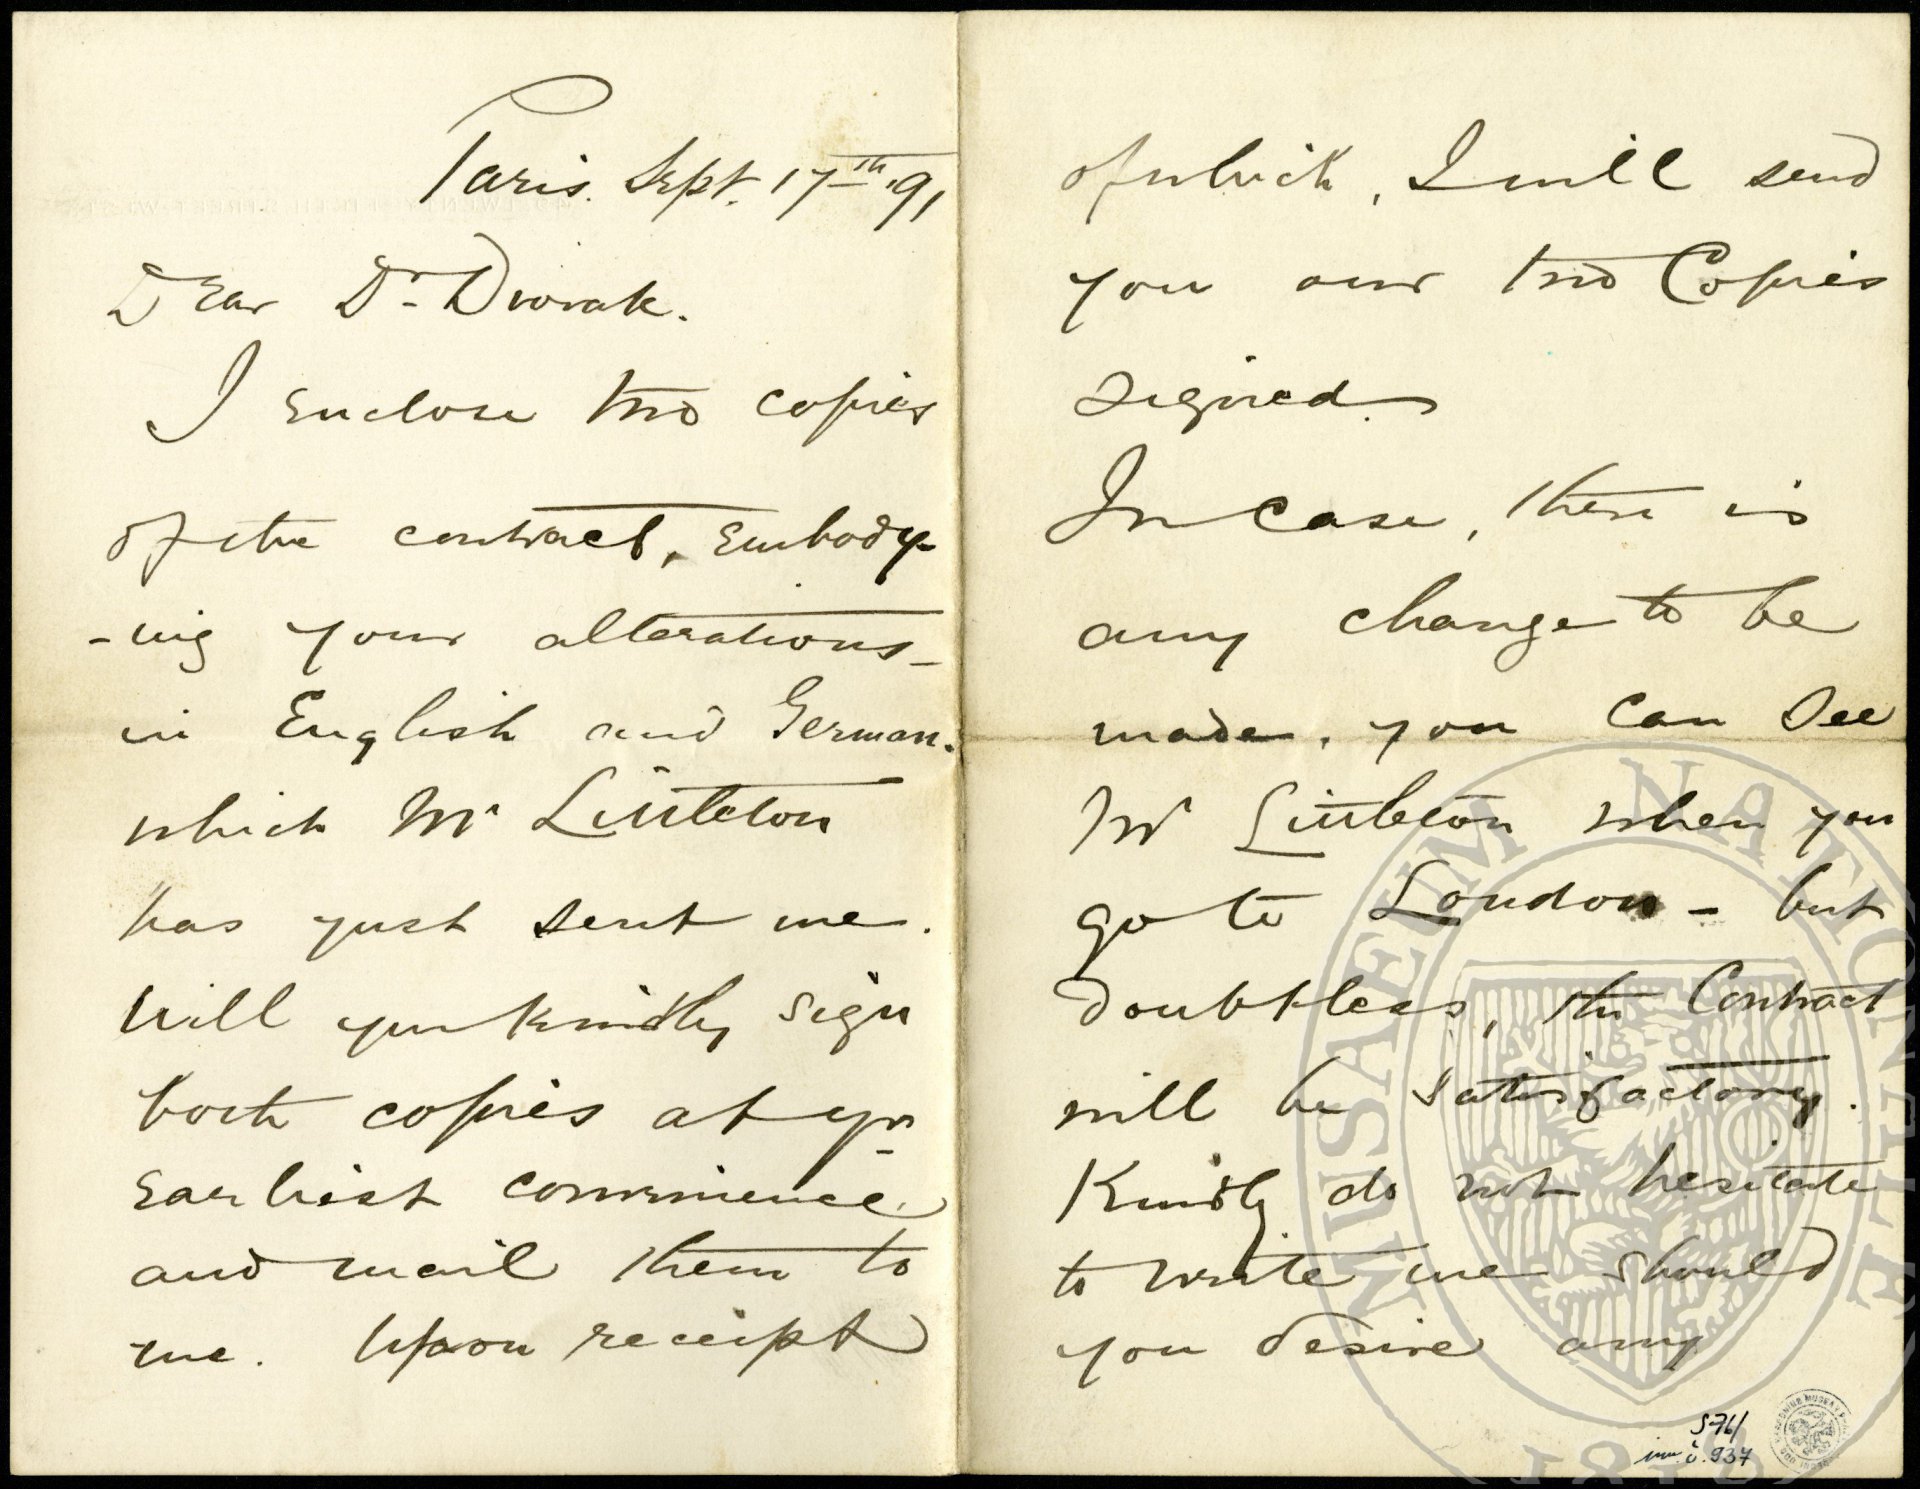 Paris. Sept. 17th '91
Dear Dr Dvorak.
I enclose two copies
of the contract, embody-
-ing your alterations -
in English and German.
which Mr Littleton
has just sent me.
Will you kindly sign
both copies at yr
earliest convenience
and mail them to
me. Upon receipt
of which, I will send
you our two Copies
signed.
In case, there is
any change to be
made, you can see
Mr Littleton when you
go to London - but
doubtless, the Contract
will be satisfactory.
Kindly do not hesitate
to write me should
you desire any
S76/
inv. č. 937
MUSAEUM NATIONALE
1818